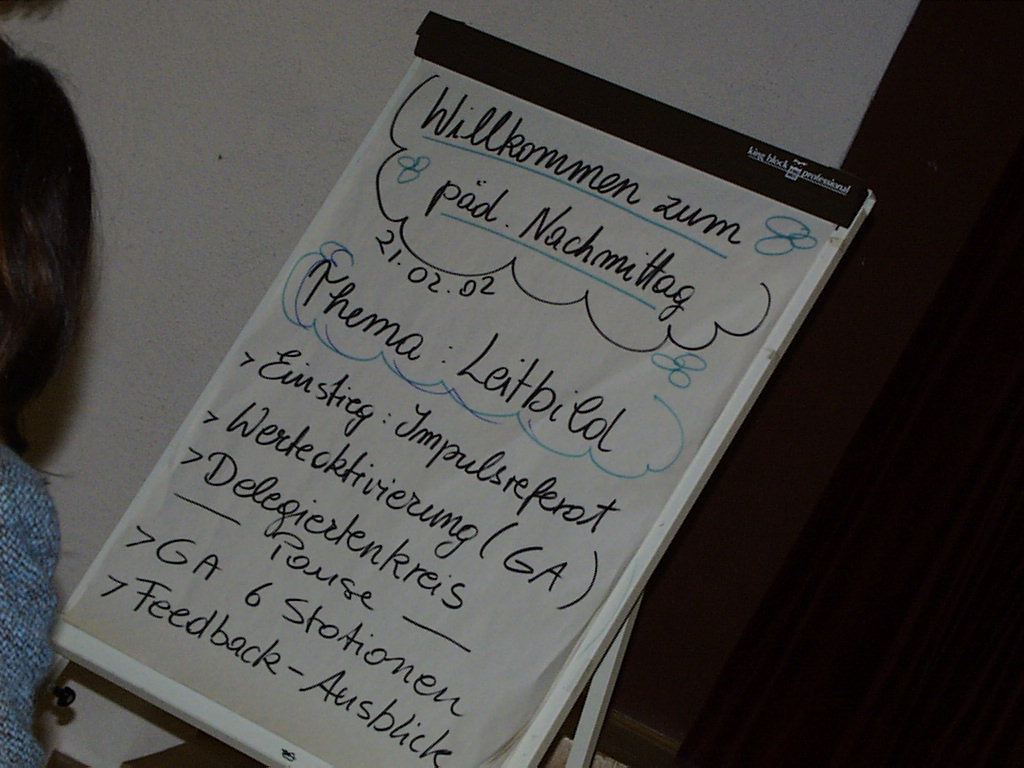 king block professional
Willkommen zum
päd. Nachmittag
21.02.02
Thema: Leitbild
> Einstieg: Impulsreferat
> Werteaktivierung (GA)
> Delegiertenkreis
— Pause —
> GA 6 Stationen
> Feedback - Ausblick